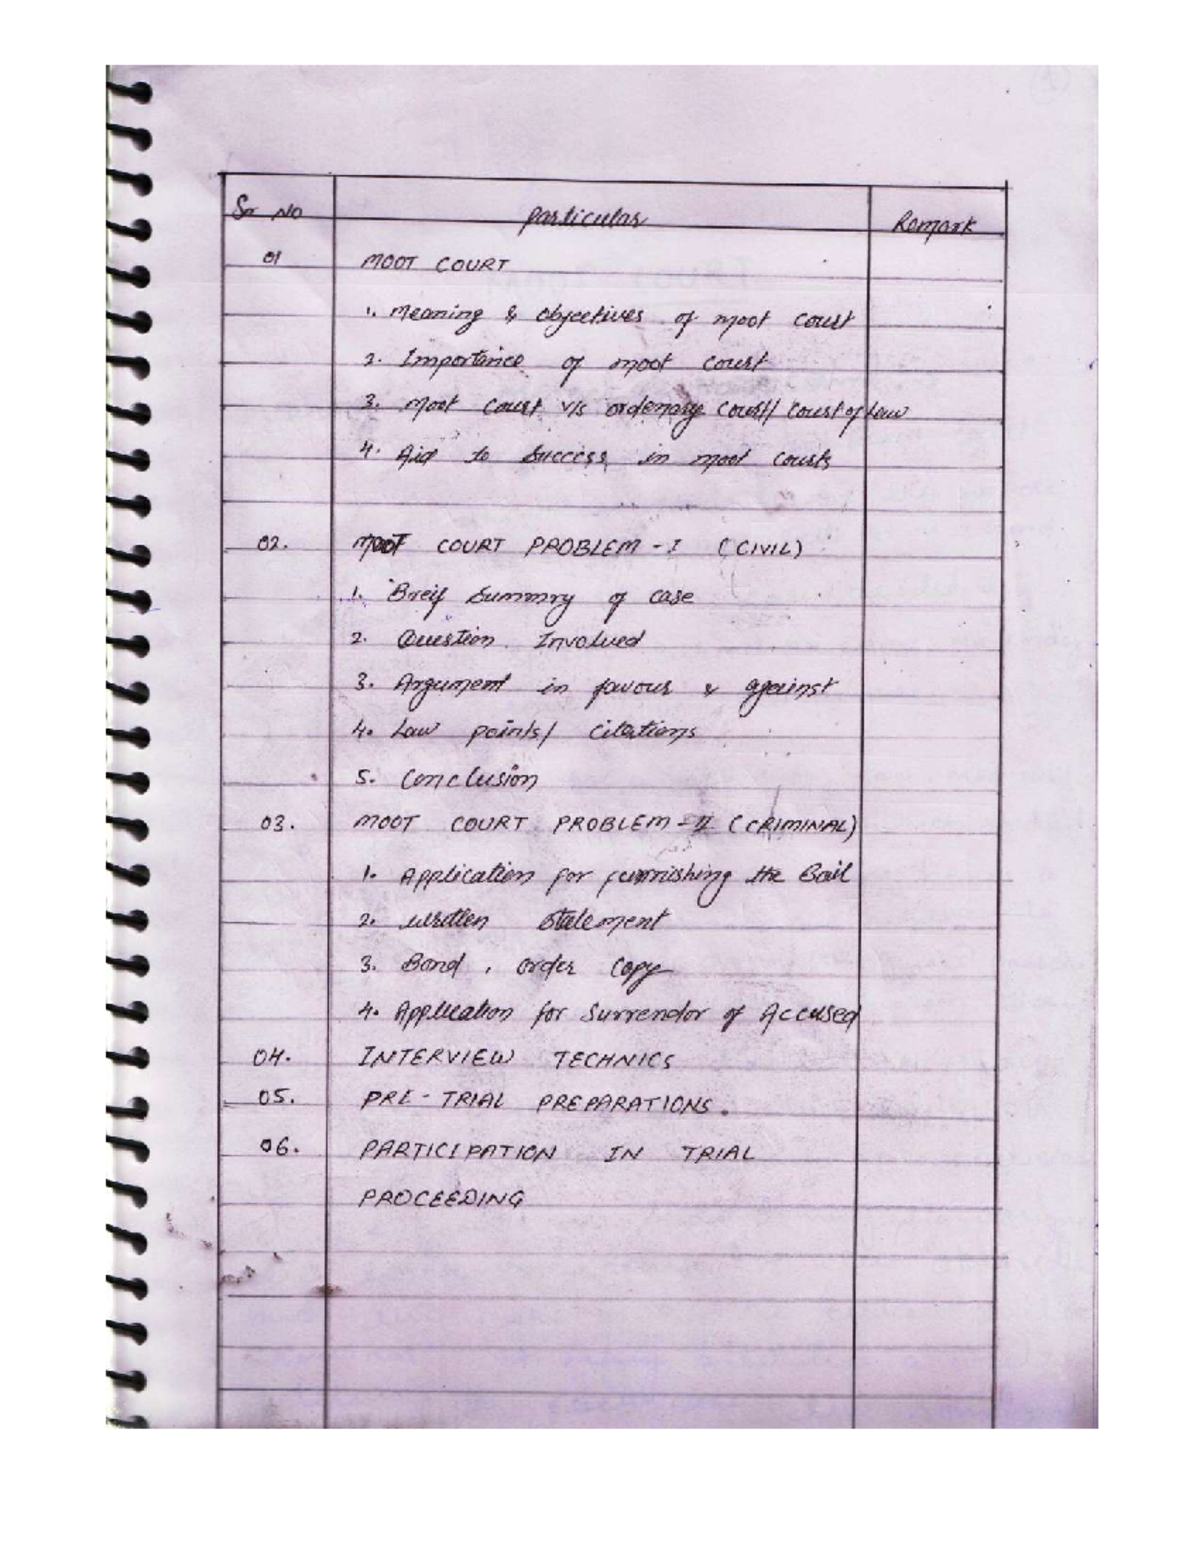 Sr No Particular Remark
01 MOOT COURT
1. Meaning & objectives of moot court
2. Importance of moot court
3. Moot Court v/s ordenary court/ court of law
4. Aid to Success in moot courts
02. MOOT COURT PROBLEM - I (CIVIL)
1. Breif Summry of case
2. Question Involved
3. Argument in favour & against
4. Law points/ citations
5. Conclusion
03. MOOT COURT PROBLEM - II (CRIMINAL)
1. Application for furnishing the Bail
2. written statement
3. Bond, order copy
4. Application for Surrendor of Accused
04. INTERVIEW TECHNICS
05. PRE-TRIAL PREPARATIONS.
06. PARTICIPATION IN TRIAL
PROCEEDING